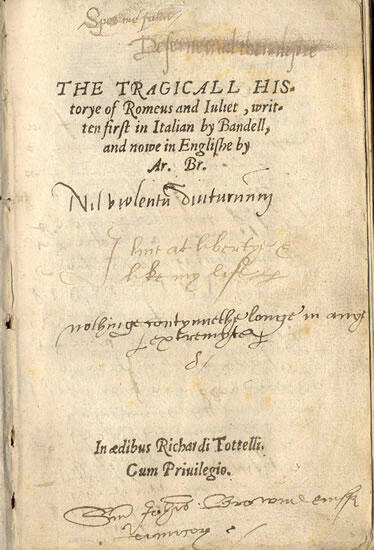 Spes me
THE TRAGICALL HIS-
torye of Romeus and Iuliet, writ-
ten first in Italian by Bandell,
and nowe in Englishe by
Ar. Br.
Nil violentū diuturnum
I liue at libertye
like my life
nothinge contynuethe longe in any
extremytee
In ædibus Richardi Tottelli.
Cum Priuilegio.